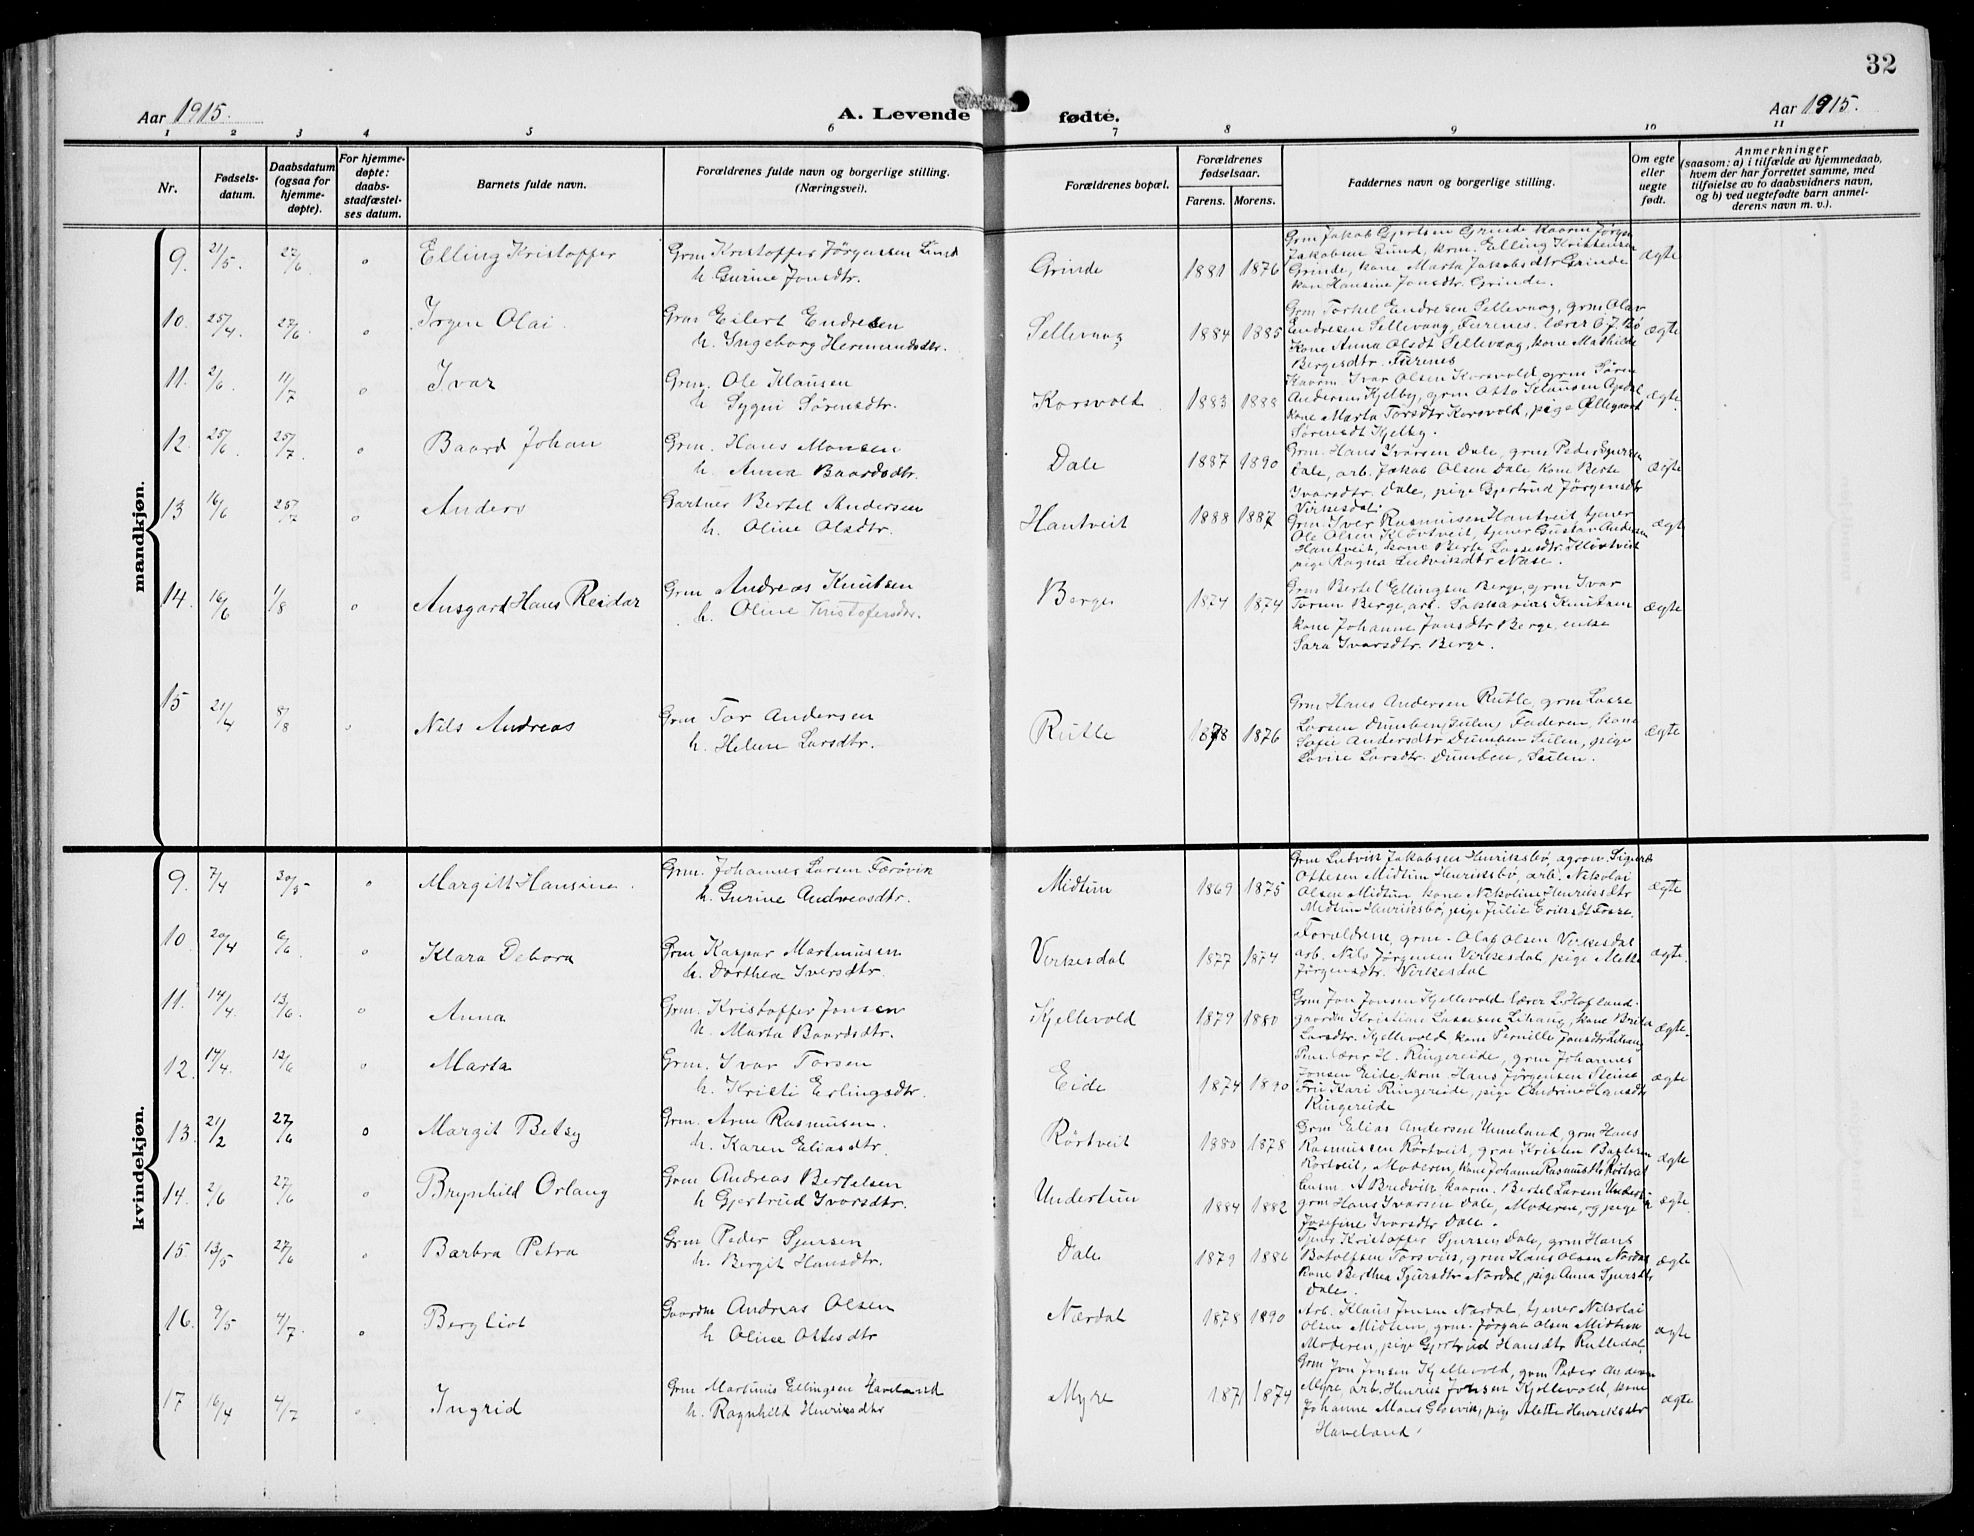 32
Aar 1915.
A. Levende fødte.
Aar 1915.
1 2 3 4 5 6 7 8 9 10 11
Nr.
Fødsels-
datum.
Daabsdatum
(ogsaa for
hjemme-
døpte).
For hjemme-
døpte:
daabs-
stadfæstel-
ses datum.
Barnets fulde navn.
Forældrenes fulde navn og borgerlige stilling.
(Næringsvei).
Forældrenes bopæl.
Forældrenes
fødselsaar.
Farens. Morens.
Faddernes navn og borgerlige stilling.
Om egte
eller
uegte
født.
Anmerkninger
(saasom: a) i tilfælde av hjemmedaab,
hvem der har forrettet samme, med
tilføielse av to daabsvidners navn,
og b) ved uegtefødte barn anmel-
derens navn m. v.).
mandkjøn.
9. 21/5. 27/6 o Elling Kristoffer
Grm Kristoffer Jørgensen Lund
h. Gurine Jonsdtr.
Grinde 1881 1876
Grm Jakob Gjertsen Grinde kaarm Jørgen
Jakobsen Lund, krm. Elling Kristensen
Grinde, kone Marta Jakobsdtr Grinde
kone Hansine Jonsdtr Grinde.
ægte
10. 25/4. 27/6. o Jørgen Olai.
Grm Eilert Endresen
h. Ingeborg Hermundsdtr.
Sellevaag 1884 1885
Grm Torkel Endresen Sellevaag, grm Olav
Endresen Sellevaag, Furenes. lærer O. J. Bø
Kone Anna Olsdt Sellevaag, kone Mathilde
Bergesdtr. Furenes
ægte
11. 2/6. 11/7 o Ivar
Grm. Ole Klausen
h. Sygni Sørensdtr.
Korsvold 1883 1888
Kaarm. Ivar Olsen Korsvold grm Søren
Andersen Kjelby, grm Otto Klausen
kone Marta Torsdtr Korsvold, pige Øllegaard
Sørensdt Kjelby.
ægte.
12. 25/6. 25/7 o Baard Johan
Grm. Hans Monsen
h. Anna Baardsdtr.
Dale 1887 1890
Grm. Hans Ivarsen Dale, grm Peder Sjursen
Dale, arb. Jakob Olsen Dale kone Berte
Ivarsdtr. Dale, pige Gjertrud Jørgensdtr
Virkesdal.
ægte
13 16/6 25/7 o Anders
Gartner Bertel Andersen
h. Oline Olsdtr.
Hantveit 1888 1887
Grm. Iver Rasmussen Hantveit, tjener
Ole Olsen Kløvtveit, tjener Gustav Andersen
Hantveit, kone Berte Lassesdtr. Kløvtveit
pige Ragna Ludvikdtr Næse.
ægte
14. 16/6 1/8 o Ansgard Hans Reidar
Grm Andreas Knutsen
h. Oline Kristofersdtr.
Berge 1874 1874
Grm Bertel Ellingsen Berge, grm Ivar
Torsen Berge, arb. Sakkarias Knutsen
kone Johanne Jonsdtr Berge, enke
Sara Ivarsdtr. Berge.
ægte
15 21/4 8/8 Nils Andreas
Grm Tor Andersen
h. Helene Larsdtr.
Rutle 1878 1876
Grm Hans Andersen Rutle, grm Lasse
Larsen Dumben, Sulen, Faderen, kone
Sofie Andersdtr Dumben Sulen, pige
Lovise Larsdtr. Dumben, Sulen.
ægte
kvindekjøn.
9. 7/4 30/5 o Margitt Hansine.
Grm. Johannes Larsen Færøvik
h. Gurine Andreasdtr.
Midtun 1869 1875
Grm Ludvik Jakobsen Henriksbø, agron. Sigurd
Ottesen Midtun Henriksbø, arb. Nikolai
Olsen Midtun, kone Nikoline Henriksdtr
Midtun Henriksbø, pige Julie Eriksdt Fosse.
ægte
10. 20/4 6/6 o Klara Debora
Grm Kaspar Martinusen
h. Dorthea Iversdtr.
Virkesdal 1877 1874
Forældrene, grm. Olaf Olsen Virkesdal
arb. Nils Jørgensen Virkesdal, pige Mette
Jørgensdtr. Virkesdal
ægte.
11. 14/4. 13/6. o Anna
Grm. Kristoffer Jonsen
h. Marta Baardsdtr.
Kjellevold 1879 1880
Grm Jon Jonsen Kjellevold lærer L. Hofland.
gaardm Kristian Lassesen Lihaug, kone Brita
Larsdtr. Kjellevold, kone Pernille Jonsdtr Lihaug
ægte.
12. 17/4. 13/6 o Marta
Grm. Ivar Torsen
h. Kristi Erlingsdtr.
Eide 1874 1890
Pens. lærer H. Ringereide, grm Johannes
Jonsen Eide, krm. Hans Jørgensen Steine
Fru Kari Ringereide, pige Andrine Hansdtr
Ringereide
ægte
13. 21/2 27/6 o Margit Betsy
Grm. Arne Rasmusen.
h. Karen Eliasdtr.
Rørtveit 1880 1878
Grm Elias Andersen Unneland, grm Hans
Rasmussen Rørtveit, grm Kristen Bastesen
Rørtveit, Moderen, kone Johanne Rasmusdtr Rørtveit
ægte
14. 2/6 27/6 o Brynhild Orlaug
Grm Andreas Bertelsen
h Gjertrud Ivarsdtr.
Undertun 1884 1882
A Bredvik, kaarm. Bertel Larsen Undertun
grm Hans Ivarsen Dale, Moderen, og pige
Josefine Ivarsdtr Dale.
ægte.
15. 13/5 27/6 o Barbra Petra
Grm Peder Sjursen
h. Bergit Hansdtr.
Dale 1879 1886
Tjener Kristoffer Sjursen Dale, grm Hans
Botolfsen Torsvik, grm Hans Olsen Nordal
kone Berthea Sjursdtr Nordal, pige Anna Sjursdtr
Dale.
ægte
16. 9/5 4/7. o Bergliot
Gaardm Andreas Olsen
h Oline Ottesdtr
Nærdal 1878 1890
Arb. Klaus Jensen Nærdal, tjener Nikolai
Olsen Midtun, grm. Jørgen Olsen Midtun
Moderen, pige Gjertrud Hansdtr Rutledal
ægte
17 16/4 4/7 o Ingrid
Grm Martinus Ellingsen Haveland
h. Ragnhild Henriksdtr
Myre 1871 1874
Grm Jon Jonsen Kjellevold, grm Peder Andersen
Myre, arb. Henrik Jonsen Kjellevold, kone
Johanne Mons Glosvik, pige Alette Henriksdtr
Haveland.
ægte